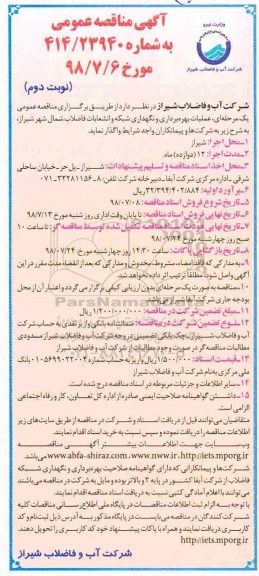 وزارت نیرو
شرکت آب و فاضلاب شیراز
آگهی مناقصه عمومی
به شماره ۴۱۴/۲۳۹۴۰
مورخ ۹۸/۷/۶
(نوبت دوم)
شرکت آب و فاضلاب شیراز در نظر دارد از طریق برگزاری مناقصه عمومی
یک مرحله‌ای، عملیات بهره‌برداری و نگهداری شبکه و انشعابات فاضلاب شمال شهر شیراز،
به شرح زیر به شرکت‌ها و پیمانکاران واجد شرایط واگذار نماید.
۱-محل اجرا: شیراز
۲-مدت اجرا: ۱۲ (دوازده) ماه.
۳-محل اخذ اسناد مناقصه و تسلیم پیشنهادات: شیراز-پل حر-خیابان ساحلی
شرقی-اداره مرکزی شرکت آبفا-دبیرخانه شرکت تلفن: ۸-۳۲۲۸۱۱۵۶-۰۷۱
۴-برآورد اولیه: ۳۲/۳۹۴/۴۰۲/۸۸۴ ریال
۵-تاریخ شروع فروش اسناد مناقصه: ۹۸/۰۷/۰۸
۶-تاریخ نهایی فروش اسناد مناقصه: تا پایان وقت اداری روز شنبه مورخ ۹۸/۷/۱۳
۷-تاریخ نهایی عودت اسناد مناقصه تکمیل شده توسط مناقصه گر: تا ساعت ۱۰
صبح روز چهارشنبه مورخ ۹۸/۰۷/۲۴
۸-تاریخ بازگشایی پاکات: ساعت ۱۴:۳۰ روز چهارشنبه مورخ ۹۸/۰۷/۲۴
۹-به مدارکی که فاقد امضاء، مشروط، مخدوش و مدارکی که بعد از انقضاء مدت مقرر در این
آگهی واصل شود، مطلقا ترتیب اثر داده نخواهد شد.
۱۰-مناقصه به صورت یک مرحله‌ای بدون ارزیابی کیفی برگزار می گردد و اعتبار آن از محل
بودجه جاری شرکت آبفا شیراز می‌باشد.
۱۱-مبلغ تضمین شرکت در مناقصه: ۱/۲۰۰/۰۰۰/۰۰۰ ریال
۱۲-نوع تضمین شرکت در مناقصه: ضمانتنامه بانکی و واریز نقدی به حساب شرکت
آب و فاضلاب شیراز-چک بانکی تضمینی در وجه شرکت آب و فاضلاب شیراز مسدودی
مطالبات مناقصه گر در صورت وجود مطالبات از شرکت آب و فاضلاب شیراز
۱۳-قیمت اسناد: ۱/۵۰۰/۰۰۰ ریال واریز به حساب شماره ۰۱۰۵۶۹۹۰۲۳۰۰۴ بانک
ملی مرکزی به نام شرکت آب و فاضلاب شیراز
۱۴-سایر اطلاعات و جزئیات مربوطه در اسناد مناقصه درج شده است.
۱۵-داشتن گواهینامه صلاحیت ایمنی صادره از اداره کل تعاون، کار و رفاه اجتماعی
الزامی است.
متقاضیان می توانند قبل از دریافت اسناد و شرکت در مناقصه از طریق سایت‌های زیر
اطلاعات مناقصه را دریافت نموده و سپس نسبت به خرید اسناد اقدام نمایند.
وب سایت جهت اطلاعات بیشتر آگهی مناقصه
http://iets.mporg.ir و www.abfa-shiraz.com می‌باشد.
شرکت‌ها و پیمانکارانی که دارای گواهینامه صلاحیت بهره‌برداری و نگهداری شبکه
فاضلاب از شرکت آبفا کشور در پایه ۲ و بالاتر بوده و مایل به شرکت در مناقصه می‌باشند
می توانند با اعلام آمادگی کتبی نسبت به دریافت اسناد مناقصه اقدام نمایند
با توجه به الزام ثبت اطلاعات مناقصات در پایگاه ملی اطلاع رسانی مناقصات کلیه
شرکت کنندگان در مناقصه می‌بایست در پایگاه مذکور به آدرس ذیل ثبت‌نام و کد
کاربری دریافت نمایند و همراه با پاکات پیشنهاد خود کد کاربری را تحویل دهند.
http://iets.mporg.ir
شرکت آب و فاضلاب شیراز